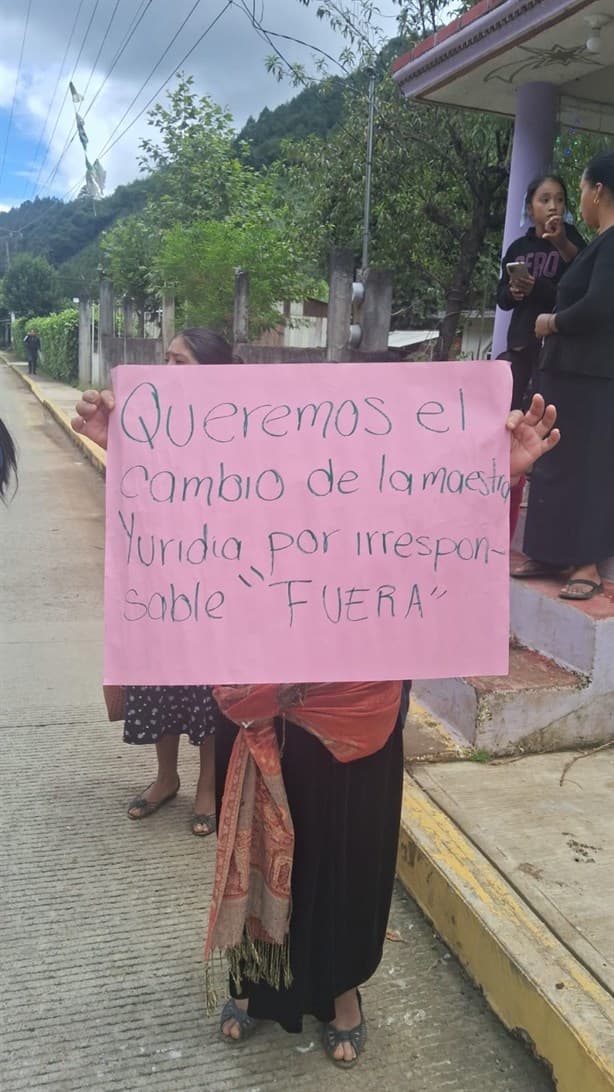 Queremos el
cambio de la maestra
Yuridia por irrespon-
sable "FUERA"